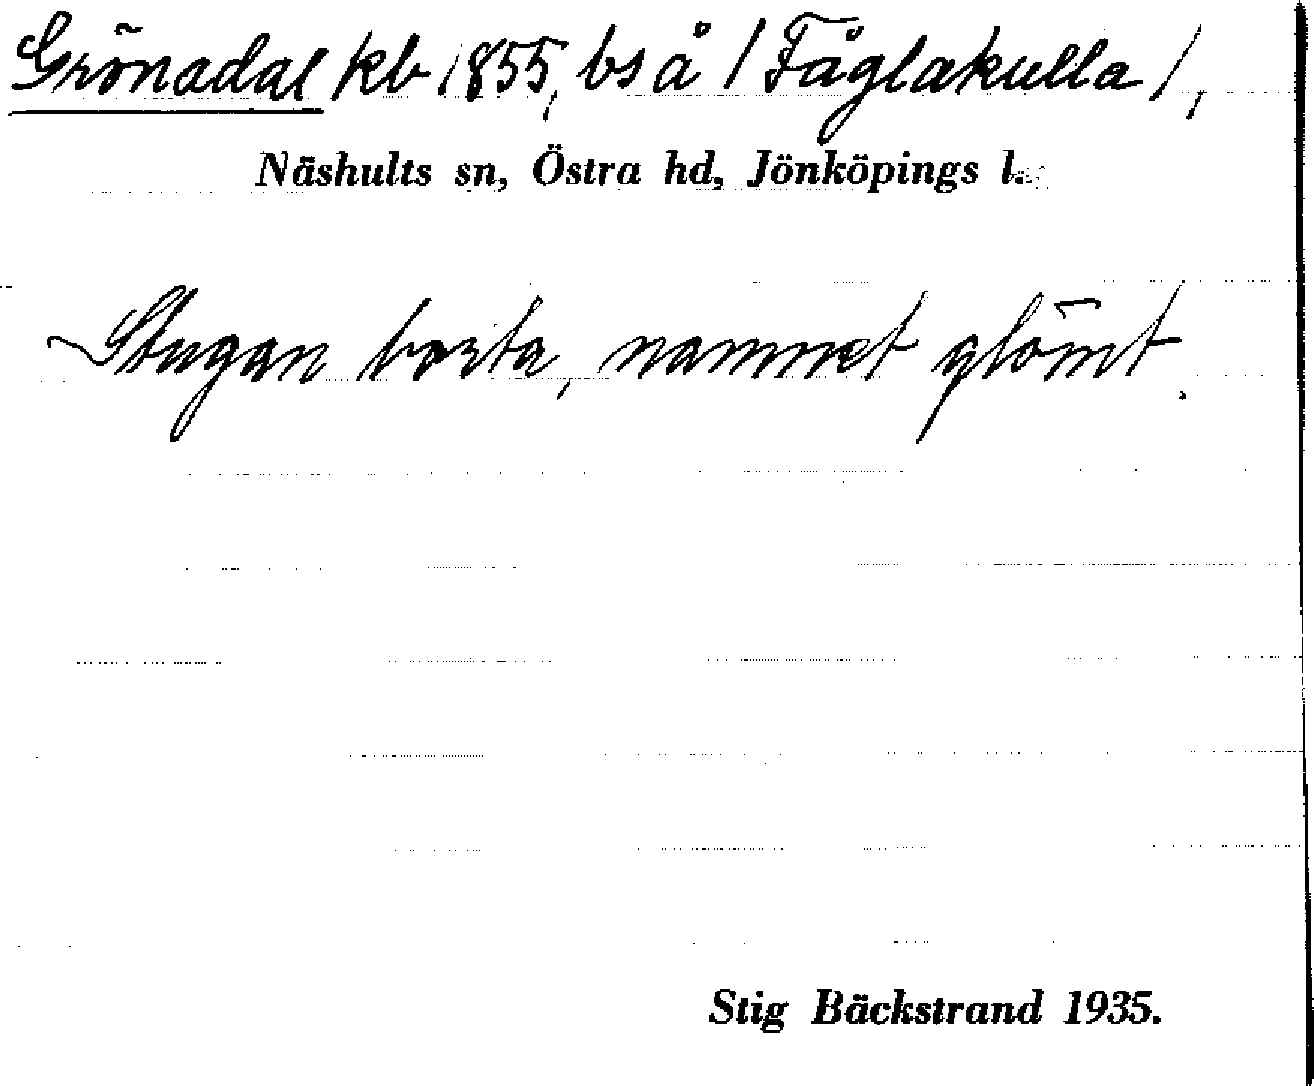 Grönadal kb 1855, bs å / Fåglakulla /,
Näshults sn, Östra hd, Jönköpings l.
Stugan borta, namnet glömt.
Stig Bäckstrand 1935.